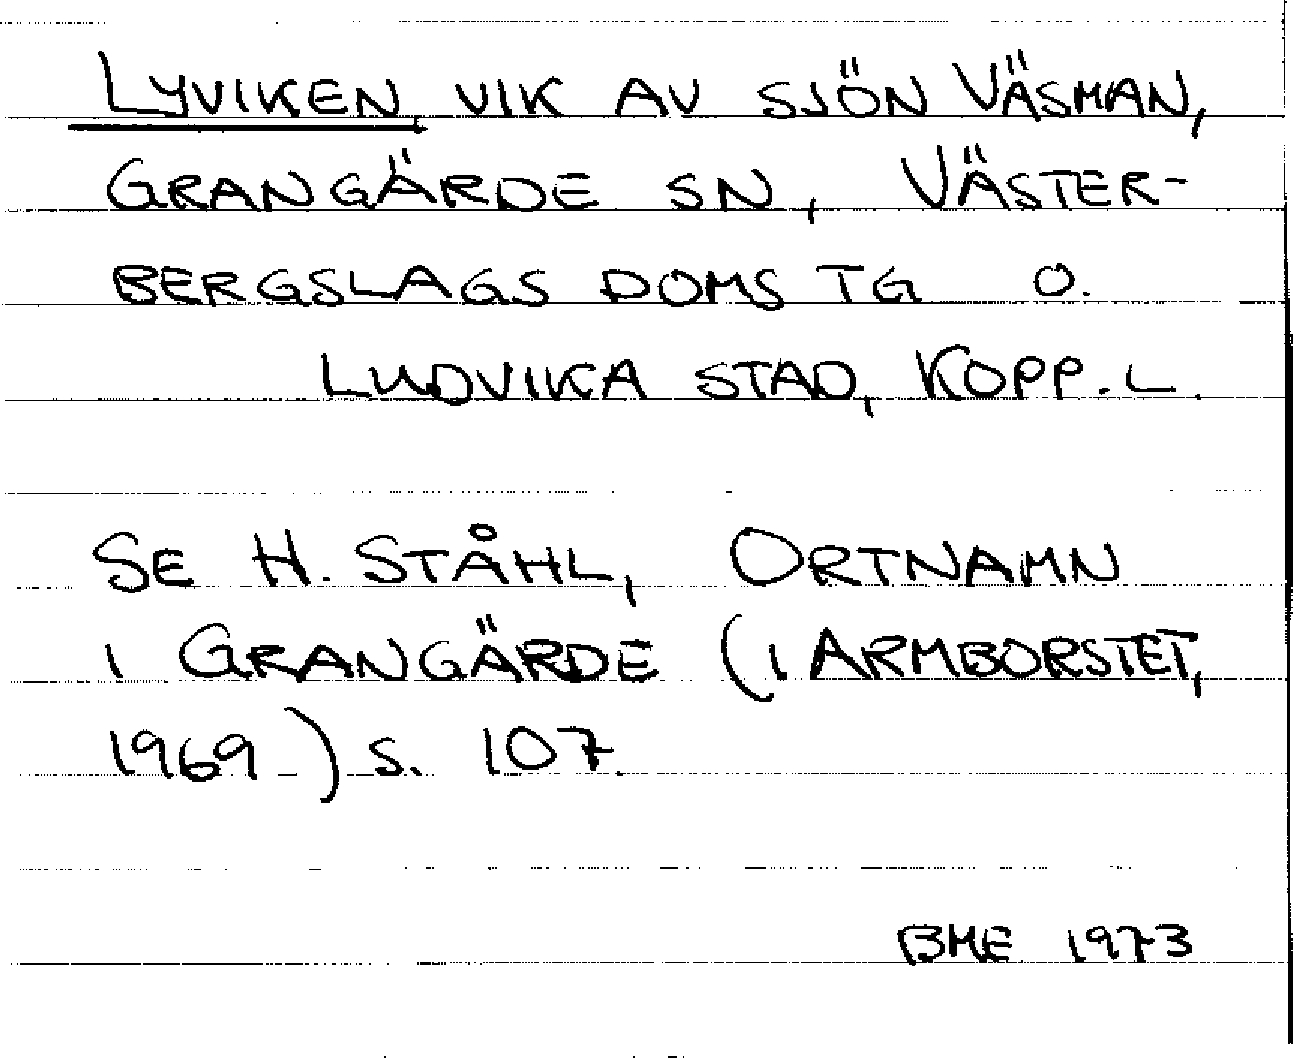 LYVIKEN, VIK AV SJÖN VÄSMAN,
GRANGÄRDE SN, VÄSTER-
BERGSLAGS DOMS TG O.
LUDVIKA STAD, KOPP. L.
SE H. STÅHL, ORTNAMN
I GRANGÄRDE (I ARMBORSTET,
1969) S. 107.
BME 1973